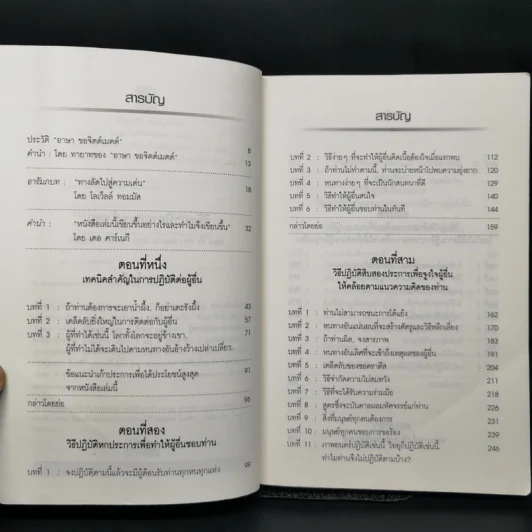 สารบัญ
ประวัติ "อาษา ขอจิตต์เมตต์" 8
คำนำ : โดย ทายาทของ "อาษา ขอจิตต์เมตต์" 13
อารัมภบท : "ทางลัดไปสู่ความเด่น" 18
โดย โลเวิลล์ ทอมมัส
คำนำ : "หนังสือเล่มนี้เขียนขึ้นอย่างไรและทำไมจึงเขียนขึ้น" 32
โดย เดล คาร์เนกี
ตอนที่หนึ่ง
เทคนิคสำคัญในการปฏิบัติต่อผู้อื่น
บทที่ 1 : ถ้าท่านต้องการจะเอาน้ำผึ้ง, ก็อย่าเตะรังผึ้ง 43
บทที่ 2 : เคล็ดลับยิ่งใหญ่ในการติดต่อกับผู้อื่น 57
บทที่ 3 : ผู้ที่ทำได้เช่นนี้ โลกทั้งโลกจะอยู่ข้างเขา, 71
ผู้ที่ทำไม่ได้จะเดินไปตามหนทางอันอ้างว้างเปล่าเปลี่ยว.
ข้อแนะนำเก้าประการเพื่อได้ประโยชน์สูงสุด 91
จากหนังสือเล่มนี้
กล่าวโดยย่อ 96
ตอนที่สอง
วิธีปฏิบัติหกประการเพื่อทำให้ผู้อื่นชอบท่าน
บทที่ 1 : จงปฏิบัติตามนี้แล้วจะมีผู้ต้อนรับท่านทุกหนทุกแห่ง 99
สารบัญ
บทที่ 2 : วิธีง่ายๆ ที่จะทำให้ผู้อื่นติดเนื้อต้องใจเมื่อแรกพบ 112
บทที่ 3 : ถ้าท่านไม่ทำตามนี้, ท่านจะบ่ายหน้าไปพบความยุ่งยาก 120
บทที่ 4 : หนทางง่ายๆ ที่จะเป็นนักสนทนาที่ดี 129
บทที่ 5 : วิธีทำให้ผู้อื่นสนใจ 140
บทที่ 6 : วิธีทำให้ผู้อื่นชอบท่านในทันที 144
กล่าวโดยย่อ 159
ตอนที่สาม
วิธีปฏิบัติสิบสองประการเพื่อจูงใจผู้อื่น
ให้คล้อยตามแนวความคิดของท่าน
บทที่ 1 : ท่านไม่สามารถชนะการโต้แย้ง 162
บทที่ 2 : หนทางอันแน่นอนที่จะสร้างศัตรูและวิธีหลีกเลี่ยง 170
บทที่ 3 : ถ้าท่านผิด, จงสารภาพ 183
บทที่ 4 : หนทางอันเลิศที่จะเข้าถึงเหตุผลของผู้อื่น 191
บทที่ 5 : เคล็ดลับของซอคราตีส 205
บทที่ 6 : วิธีจำกัดความไม่สมหวัง 211
บทที่ 7 : วิธีที่จะได้รับความร่วมมือ 218
บทที่ 8 : สูตรซึ่งจะบันดาลผลมหัศจรรย์แก่ท่าน 226
บทที่ 9 : สิ่งที่มนุษย์ทุกคนต้องการ 231
บทที่ 10 : มนุษย์ทุกคนชอบการขอร้อง 239
บทที่ 11 : ภาพยนตร์ปฏิบัติเช่นนี้ วิทยุก็ปฏิบัติเช่นนี้. 246
ทำไมท่านจึงไม่ปฏิบัติตามบ้าง?